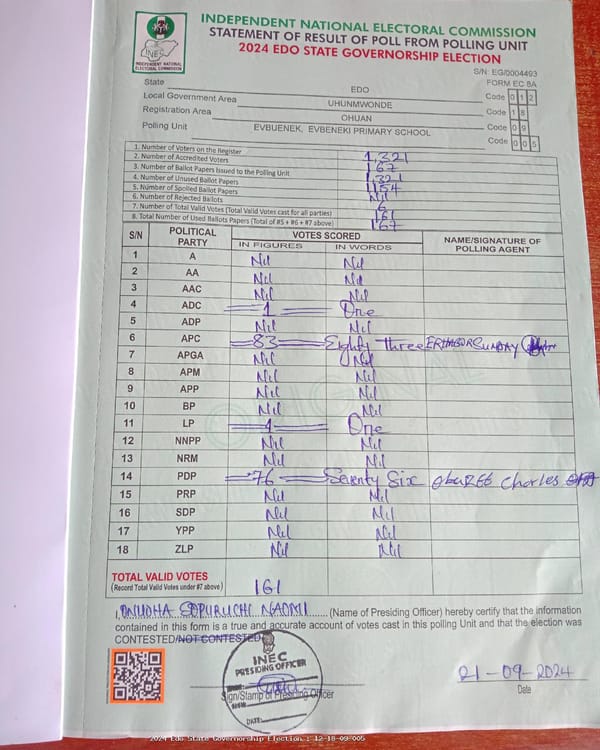 INDEPENDENT NATIONAL ELECTORAL COMMISSION
STATEMENT OF RESULT OF POLL FROM POLLING UNIT
2024 EDO STATE GOVERNORSHIP ELECTION
INEC
INDEPENDENT NATIONAL ELECTORAL COMMISSION
S/N: EG/0004493
FORM EC 8A
State EDO Code 012
Local Government Area UHUNMWONDE Code 18
Registration Area OHUAN Code 09
Polling Unit EVBUENEK, EVBENEKI PRIMARY SCHOOL Code 005
1. Number of Voters on the Register 1,321
2. Number of Accredited Voters 167
3. Number of Ballot Papers Issued to the Polling Unit 1321
4. Number of Unused Ballot Papers 1154
5. Number of Spoiled Ballot Papers Nil
6. Number of Rejected Ballots 6
7. Number of Total Valid Votes (Total Valid Votes cast for all parties) 161
8. Total Number of Used Ballots Papers (Total of #5 + #6 + #7 above) 167
S/N POLITICAL PARTY VOTES SCORED NAME/SIGNATURE OF POLLING AGENT
IN FIGURES IN WORDS
1 A Nil Nil
2 AA Nil Nil
3 AAC Nil Nil
4 ADC 1 One
5 ADP Nil Nil
6 APC 83 Eighty three SUNDAY
7 APGA Nil Nil
8 APM Nil Nil
9 APP Nil Nil
10 BP Nil Nil
11 LP 1 One
12 NNPP Nil Nil
13 NRM Nil Nil
14 PDP 76 Seventy Six Charles
15 PRP Nil Nil
16 SDP Nil Nil
17 YPP Nil Nil
18 ZLP Nil Nil
ORIGINAL
TOTAL VALID VOTES 161
(Record Total Valid Votes under #7 above)
I, NAOMI (Name of Presiding Officer) hereby certify that the information
contained in this form is a true and accurate account of votes cast in this polling Unit and that the election was
CONTESTED/NOT CONTESTED
INEC
PRESIDING OFFICER
DATE:
Sign/Stamp of Presiding Officer
21-09-2024
Date
2024 Edo State Governorship Election : 12-18-09-005